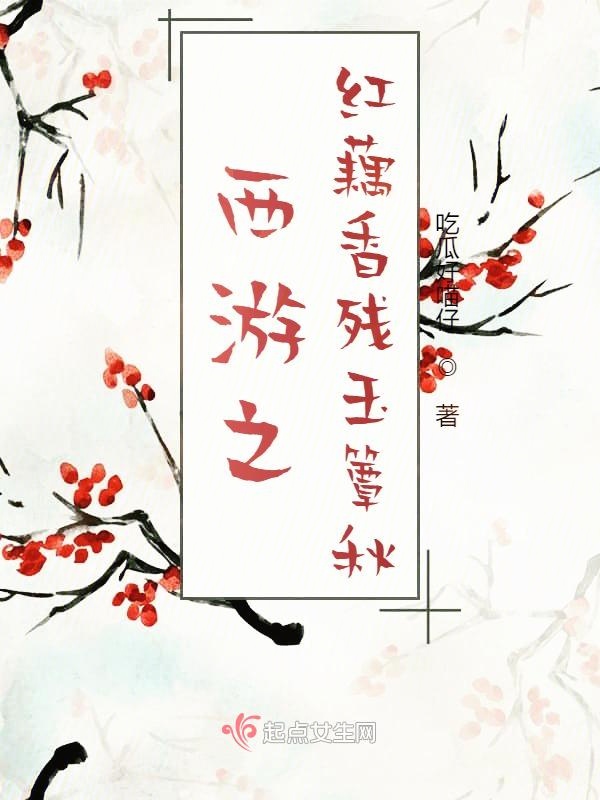 西游之
红藕香残玉簟秋
吃瓜好喵仔 ◎ 著
起点女生网